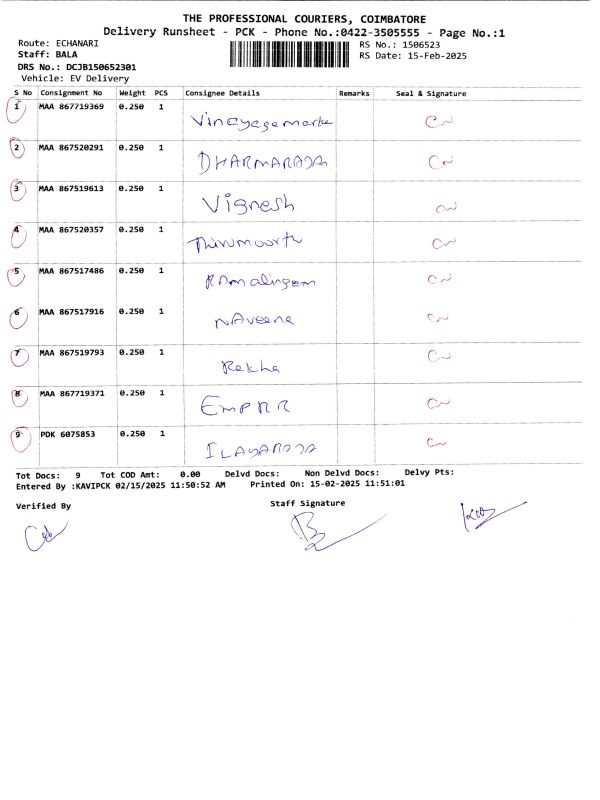 THE PROFESSIONAL COURIERS, COIMBATORE
Delivery Runsheet - PCK - Phone No.:0422-3505555 - Page No.:1
Route: ECHANARI RS No.: 1506523
Staff: BALA RS Date: 15-Feb-2025
DRS No.: DCJB150652301
Vehicle: EV Delivery
S No Consignment No Weight PCS Consignee Details Remarks Seal & Signature
1 MAA 867719369 0.250 1
2 MAA 867520291 0.250 1 DHARMARAJA
3 MAA 867519613 0.250 1 Vignesh
4 MAA 867520357 0.250 1
5 MAA 867517486 0.250 1 RAmalingam
6 MAA 867517916 0.250 1 NAveena
7 MAA 867519793 0.250 1 Rekha
8 MAA 867719371 0.250 1
9 PDK 6075853 0.250 1 ILAYARAJA
Tot Docs: 9 Tot COD Amt: 0.00 Delvd Docs: Non Delvd Docs: Delvy Pts:
Entered By :KAVIPCK 02/15/2025 11:50:52 AM Printed On: 15-02-2025 11:51:01
Verified By Staff Signature